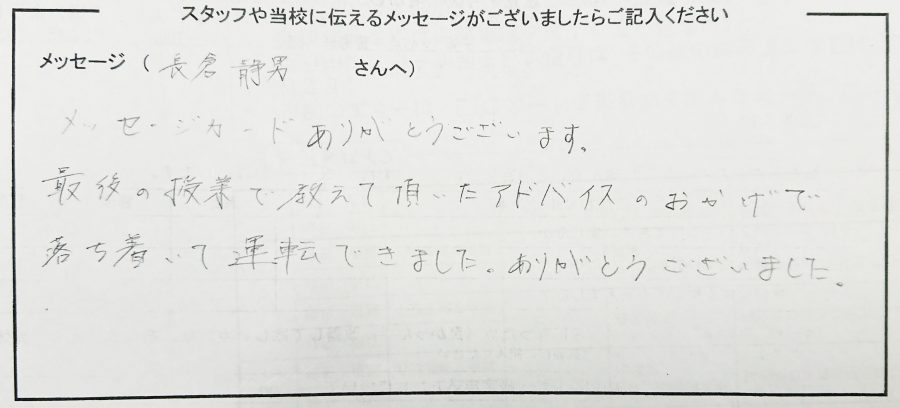 スタッフや当校に伝えるメッセージがございましたらご記入ください
メッセージ（長倉 静男 さんへ）
メッセージカードありがとうございます。
最後の授業で教えて頂いたアドバイスのおかげで
落ち着いて運転できました。ありがとうございました。